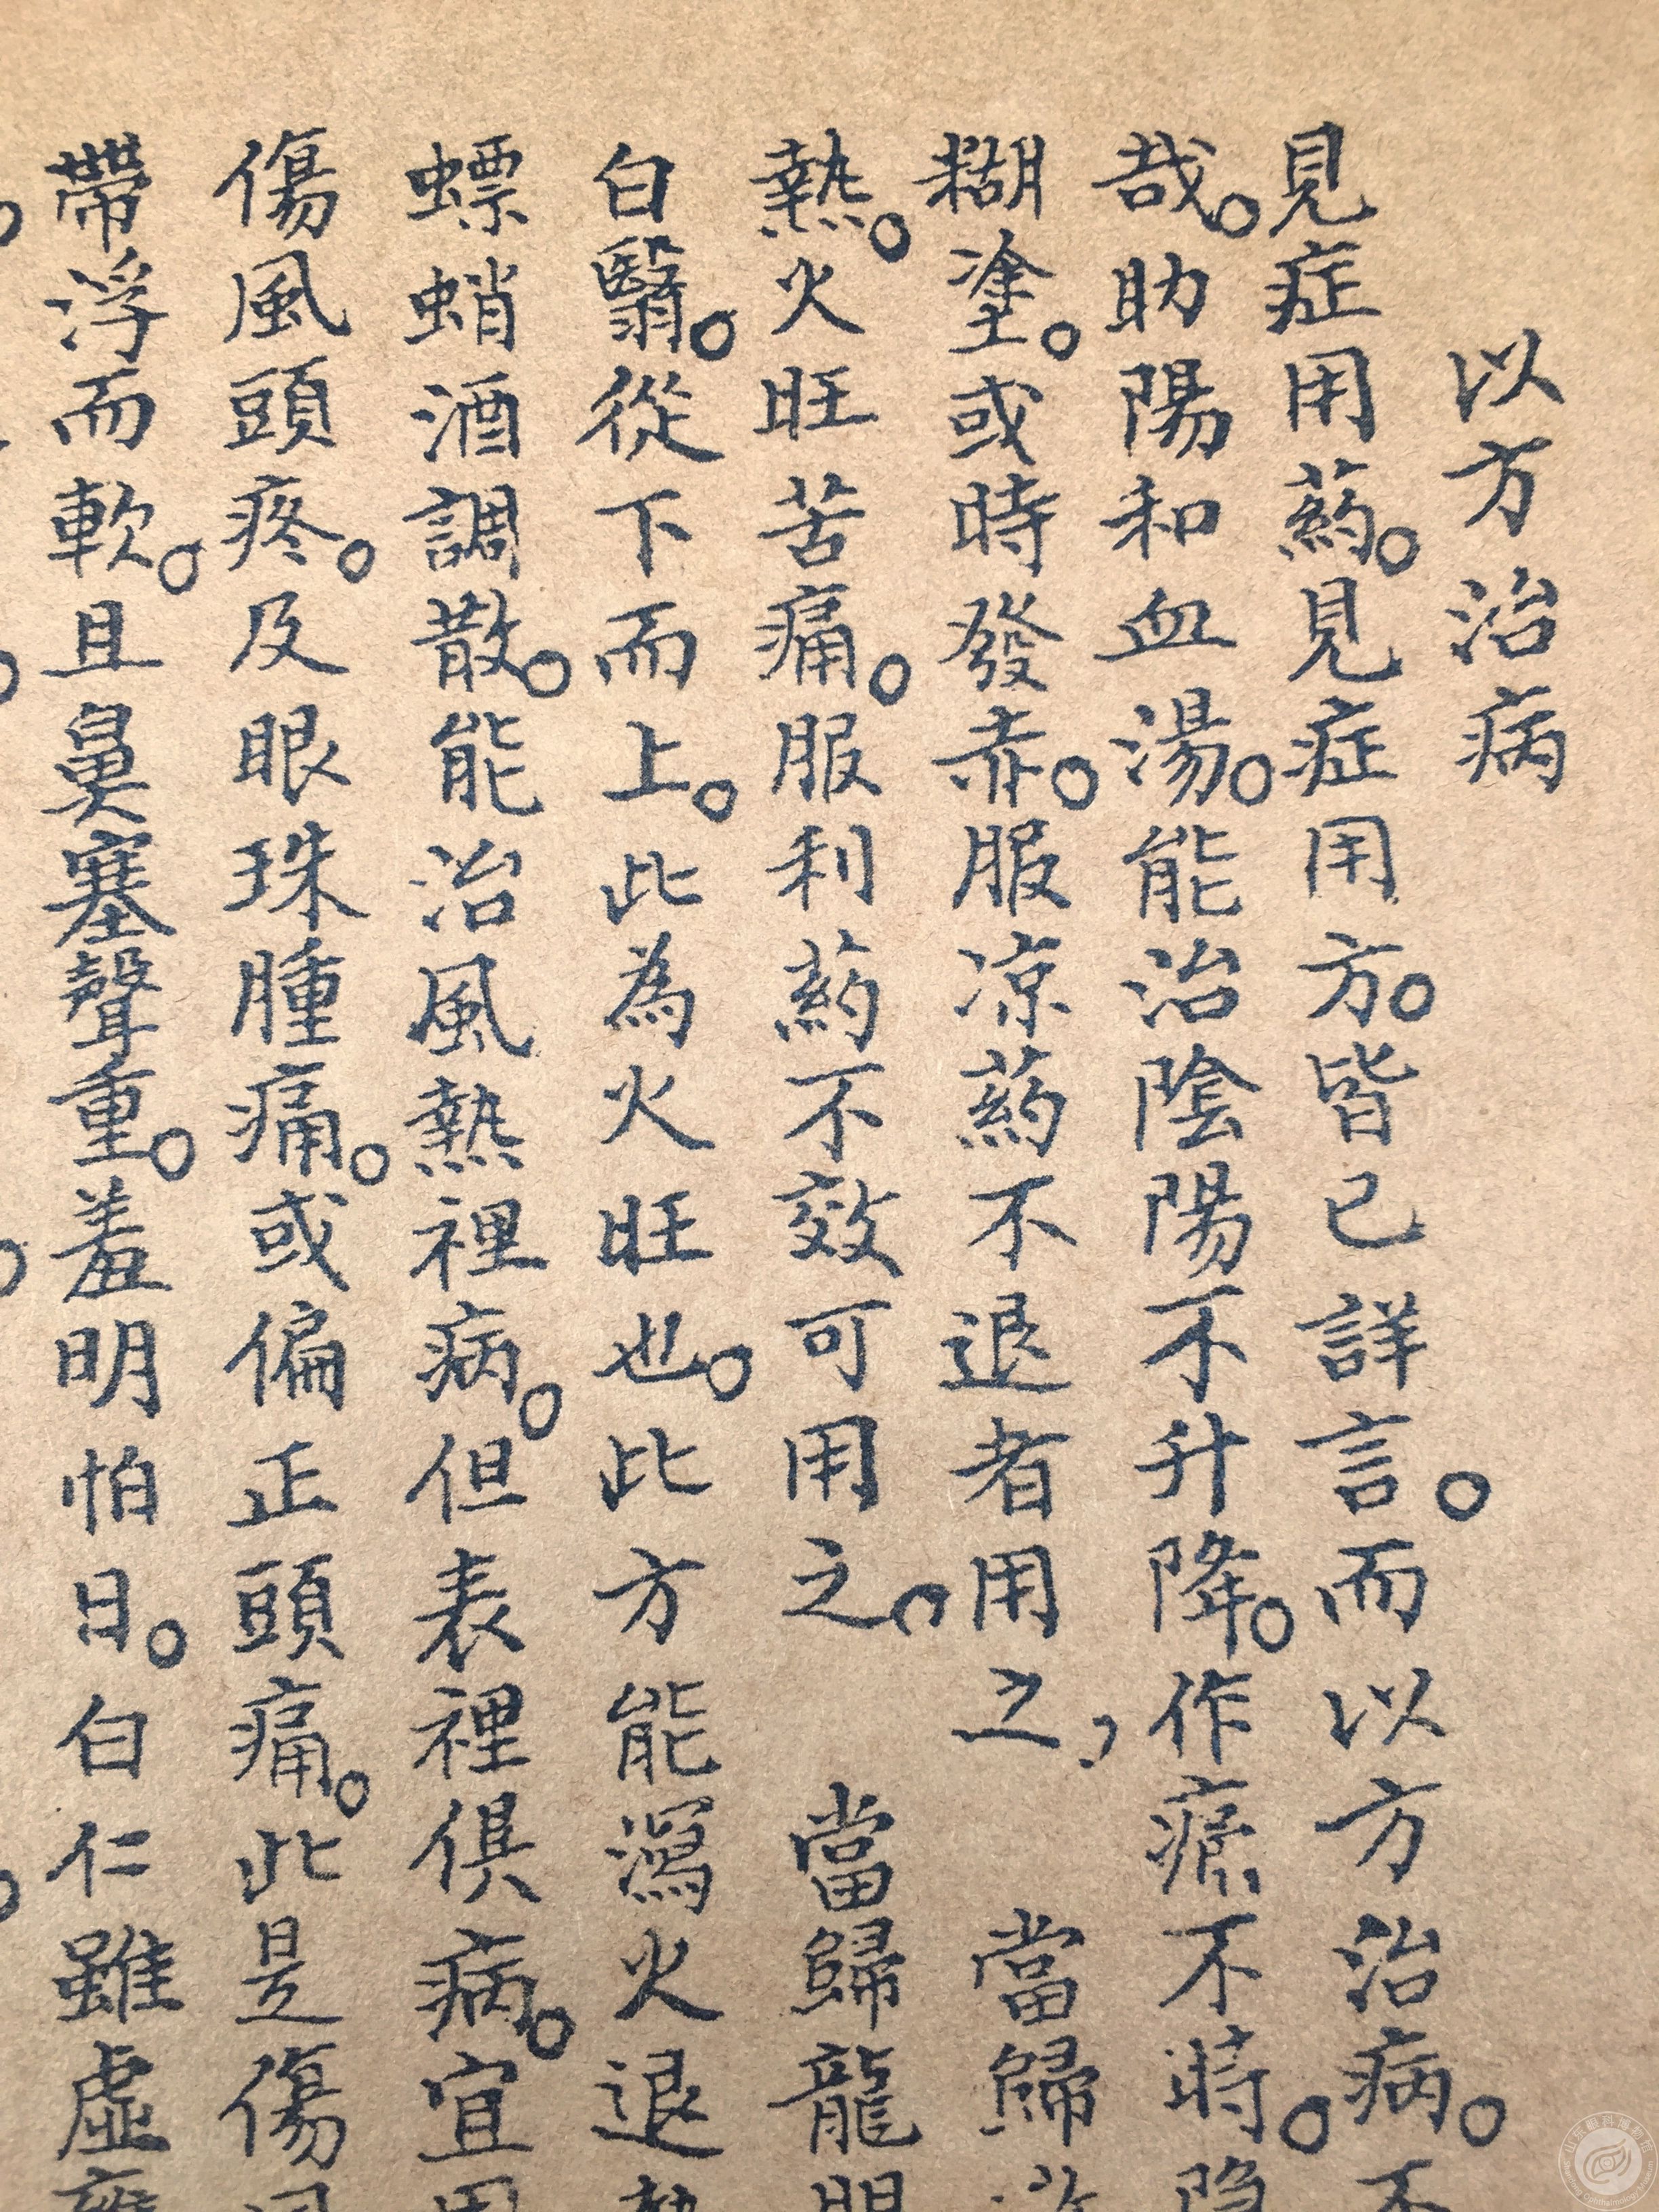 以方治病
見症用葯。見症用方。皆已詳言。而以方治病。不
哉。助陽和血湯。能治陰陽不升降。作瘾不時。隐
糊塗。或時發赤。服凉葯不退者用之, 當歸
熱。火旺苦痛。服利葯不效可用之。 當歸龍
白翳。從下而上。此為火旺也。此方能瀉火退熱
螵蛸酒調散。能治風熱裡病。但表裡俱病。宜用
傷風頭疼。及眼珠腫痛。或偏正頭痛。此是傷風
帶浮而軟。且鼻塞聲重。羞明怕日。白仁雖虛